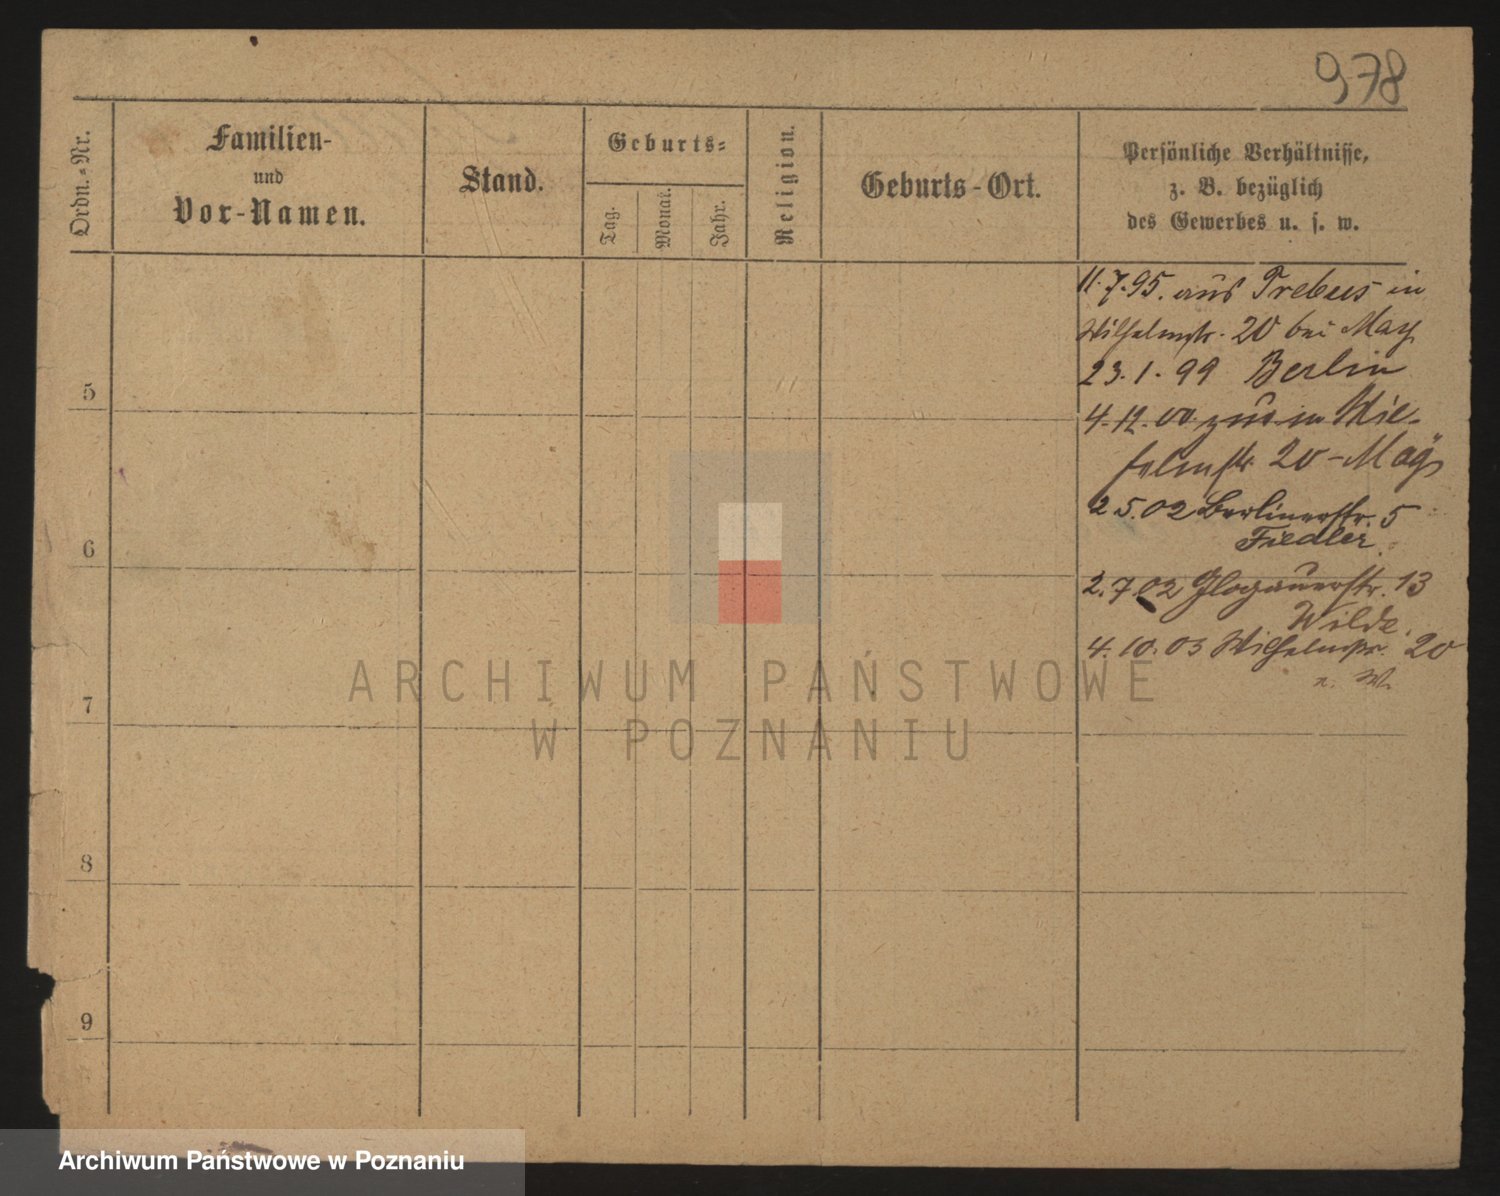 978
Ordn.-Nr.
Familien-
und
Vor-Namen.
Stand.
Geburts-
Tag.
Monat.
Jahr.
Religion.
Geburts-Ort.
Persönliche Verhältnisse,
z. B. bezüglich
des Gewerbes u. s. w.
11.7.95. aus Trebus in
Wilhelmstr. 20 bei May
23.1.99 Berlin
5
4.12.00 zur. in Wil-
helmstr. 20 - May
2 5.02 Berlinerstr. 5
Fiedler.
6
2.7.02 Glogauerstr. 13
Wilde.
4.10.03 Wilhelmstr. 20
7
8
9
ARCHIWUM PAŃSTWOWE
W POZNANIU
Archiwum Państwowe w Poznaniu